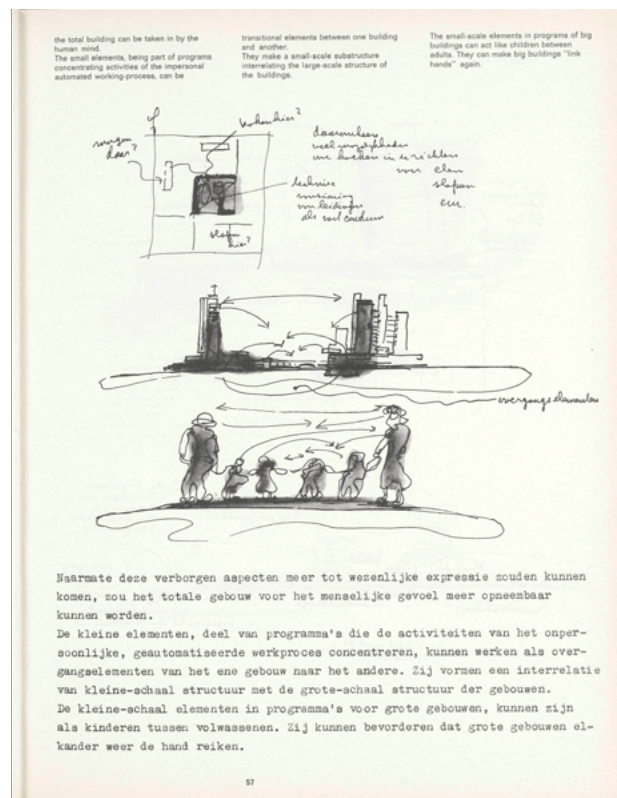 the total building can be taken in by the
human mind.
The small elements, being part of programs
concentrating activities of the impersonal
automated working-process, can be
transitional elements between one building
and another.
They make a small-scale substructure
interrelating the large-scale structure of
the buildings.
The small-scale elements in programs of big
buildings can act like children between
adults. They can make big buildings "link
hands" again.
of
koken hier?
morgen
daar?
veel mogelijkheden
in te richten
voor eten
slapen
enz.
technise
van leidingen
als
slapen
hier?
overgangselementen
Naarmate deze verborgen aspecten meer tot wezenlijke expressie zouden kunnen
komen, zou het totale gebouw voor het menselijke gevoel meer opneembaar
kunnen worden.
De kleine elementen, deel van programma's die de activiteiten van het onper-
soonlijke, geautomatiseerde werkproces concentreren, kunnen werken als over-
gangselementen van het ene gebouw naar het andere. Zij vormen een interrelatie
van kleine-schaal structuur met de grote-schaal structuur der gebouwen.
De kleine-schaal elementen in programma's voor grote gebouwen, kunnen zijn
als kinderen tussen volwassenen. Zij kunnen bevorderen dat grote gebouwen el-
kander weer de hand reiken.
57